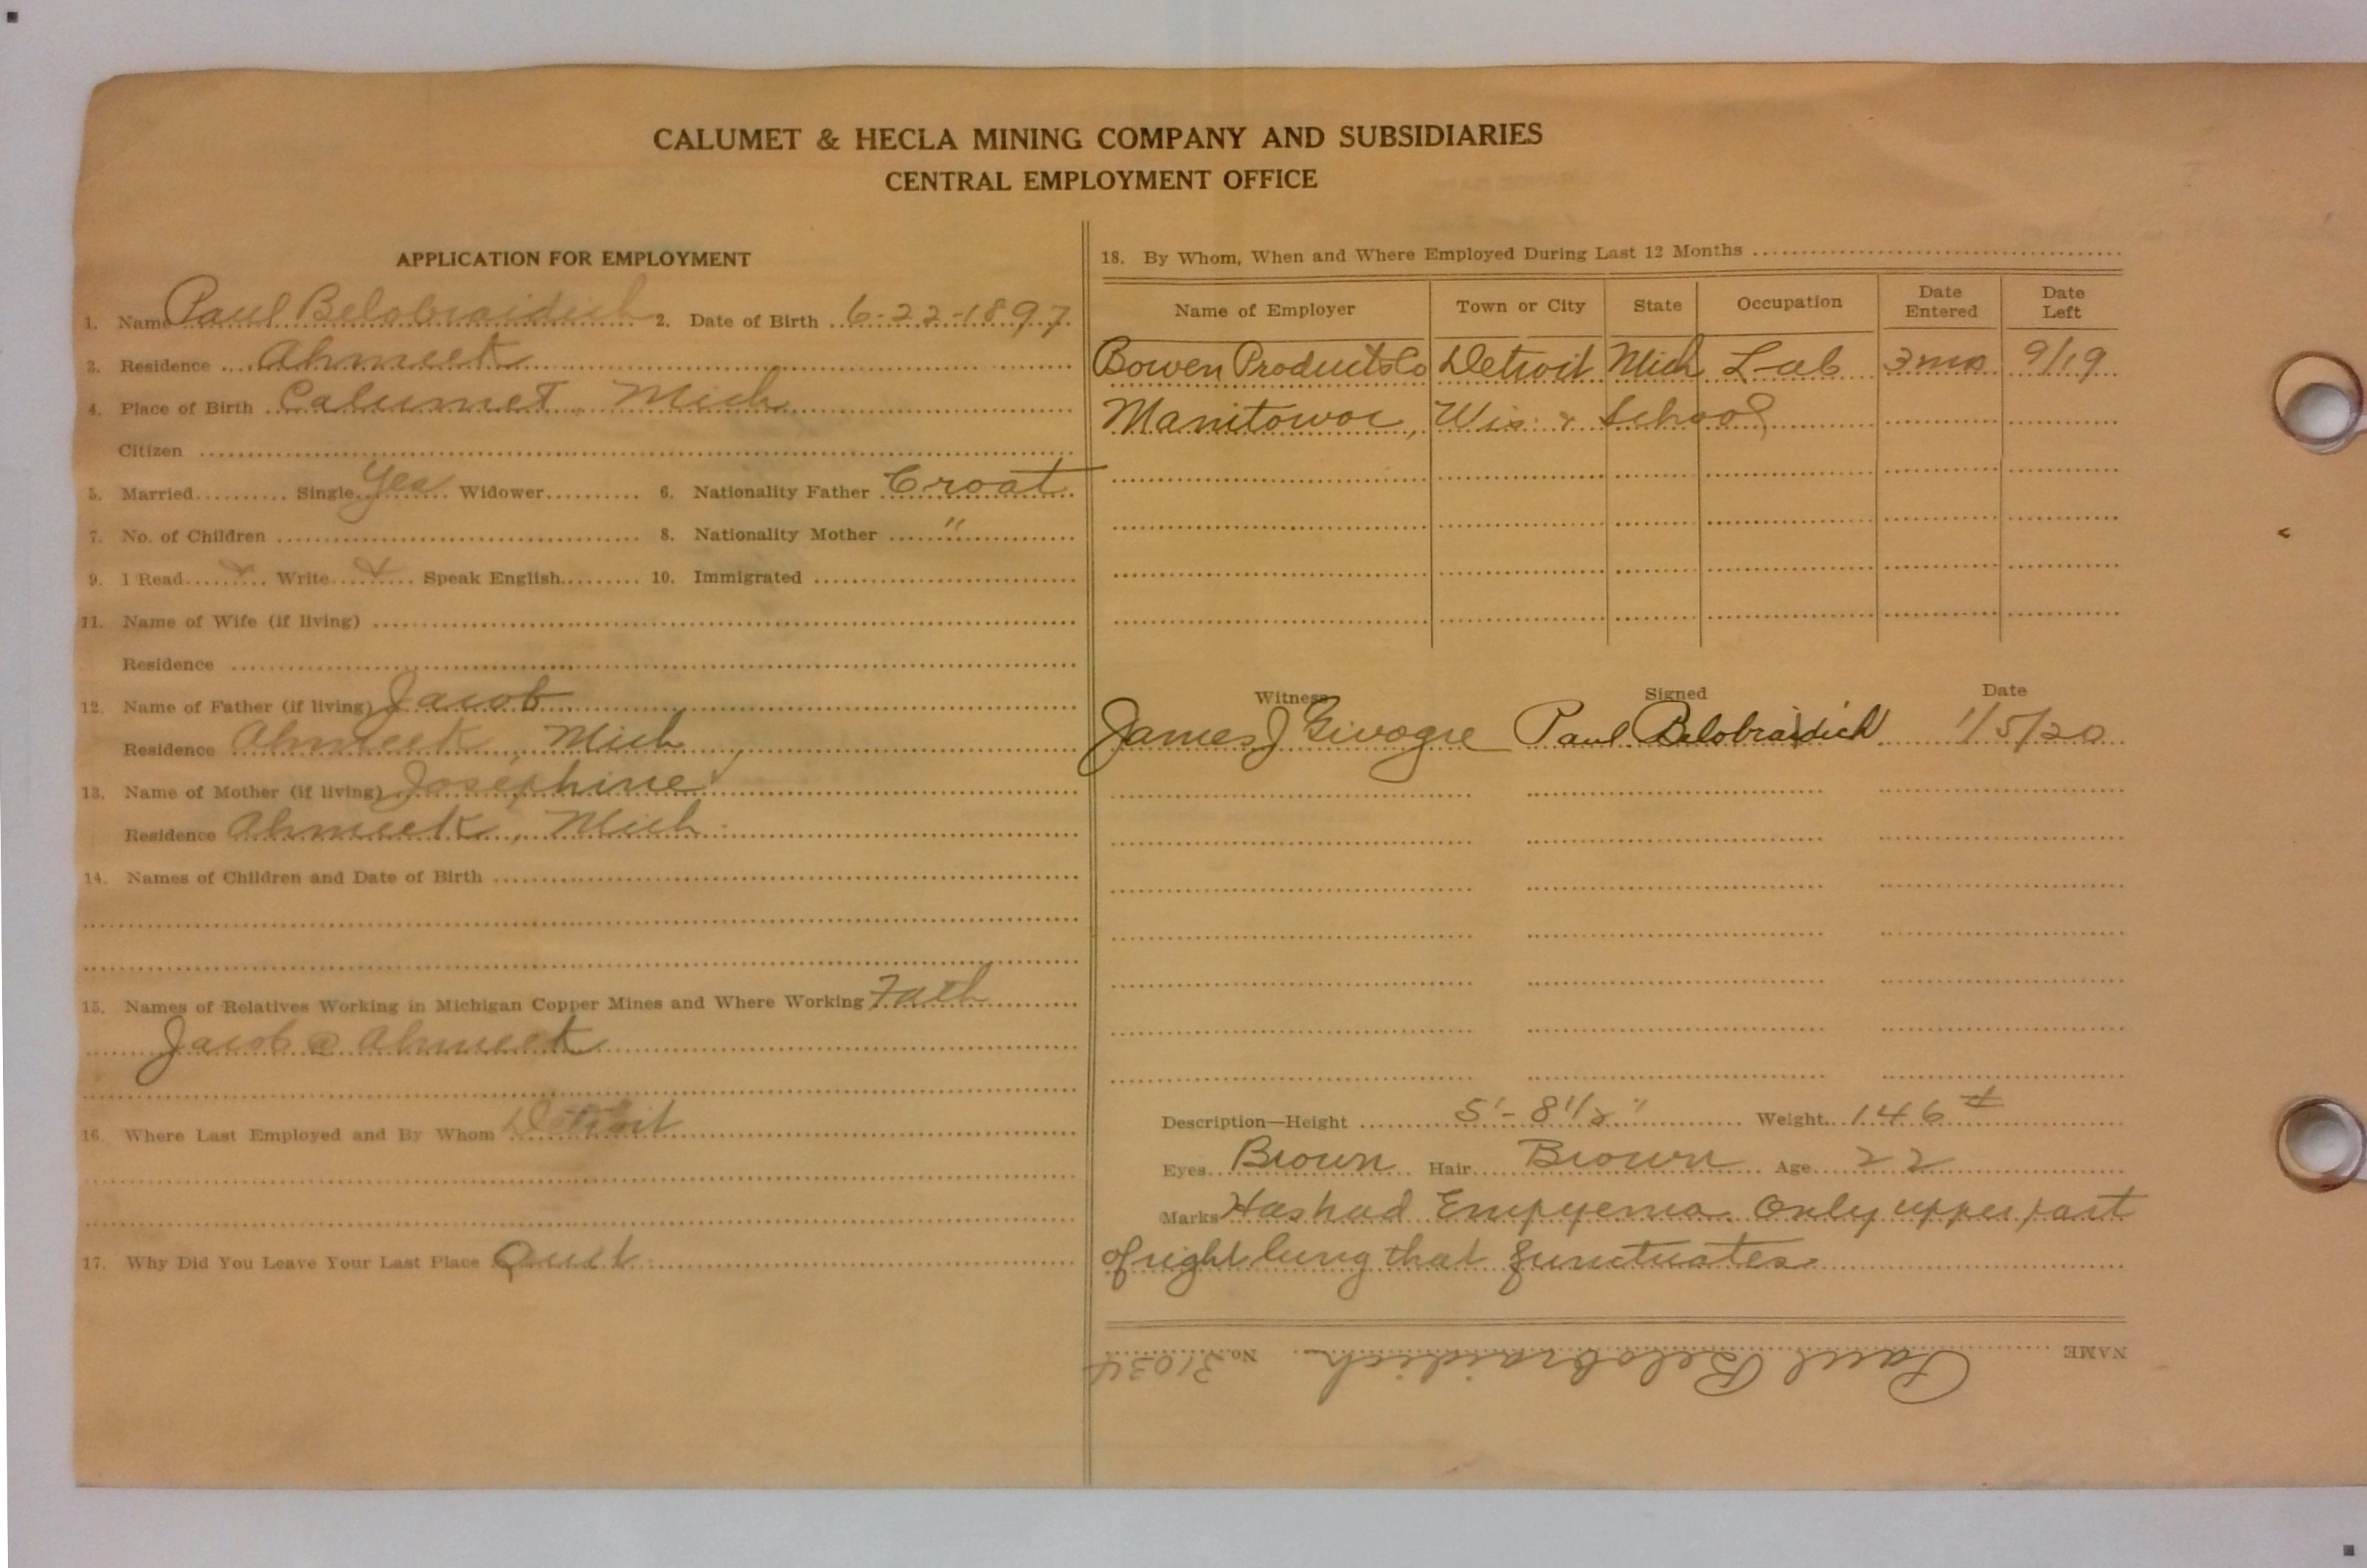 CALUMET & HECLA MINING COMPANY AND SUBSIDIARIES
CENTRAL EMPLOYMENT OFFICE
APPLICATION FOR EMPLOYMENT
1. Name Paul Belobraidich 2. Date of Birth 6-22-1897
3. Residence Ahmeek
4. Place of Birth Calumet Mich
Citizen
5. Married Single Yes Widower 6. Nationality Father Croat
7. No. of Children 8. Nationality Mother "
9. I Read x Write x Speak English 10. Immigrated
11. Name of Wife (if living)
Residence
12. Name of Father (if living) Jacob
Residence Ahmeek, Mich
13. Name of Mother (if living) Josephine
Residence Ahmeek, Mich
14. Names of Children and Date of Birth
15. Names of Relatives Working in Michigan Copper Mines and Where Working Fath
Jacob @ Ahmeek
16. Where Last Employed and By Whom Detroit
17. Why Did You Leave Your Last Place Quit
18. By Whom, When and Where Employed During Last 12 Months
Name of Employer Town or City State Occupation Date Entered Date Left
Bowen Products Co Detroit Mich Lab 3 mo 9/19
Manitowoc, Wis. & School
Witness Signed Date
James J Givogre Paul Belobraidich 1/5/20
Description—Height 5'-8 1/2" Weight 146#
Eyes Brown Hair Brown Age 22
Marks Has had Empyema. Only upper part
of right lung that functuates
NAME Paul Belobraidich No. 31034